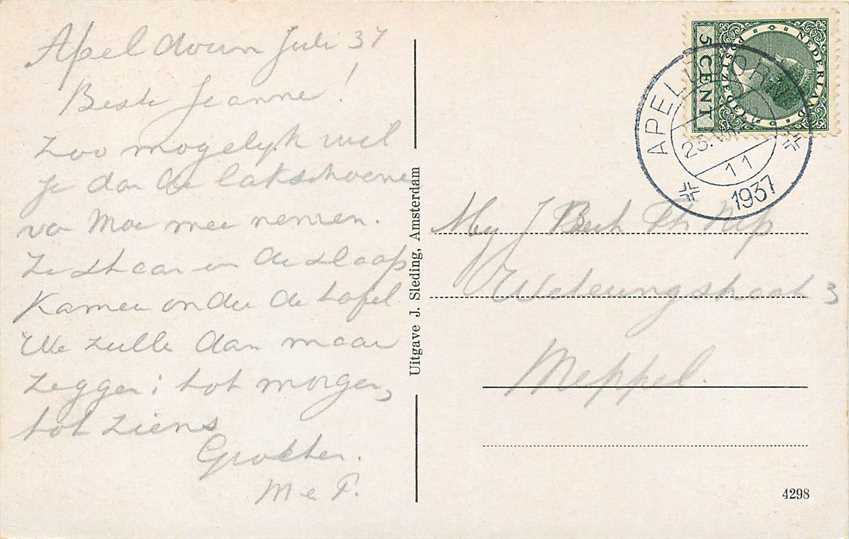 Apeldoorn Juli 37
Beste Jeanne!
Zoo mogelyk wil
je dan de lakschoenen
va Moe mee nemen.
Ze staan in de slaap
Kamer onder de tafel
We zulle dan maar
zeggen: tot morgen,
tot ziens
Groeten.
M e F.
Uitgave J. Sleding, Amsterdam
NEDERLAND
5 CENT
APELDOORN
11
1937
Mej J
Weteringstraat 3
Meppel.
4298